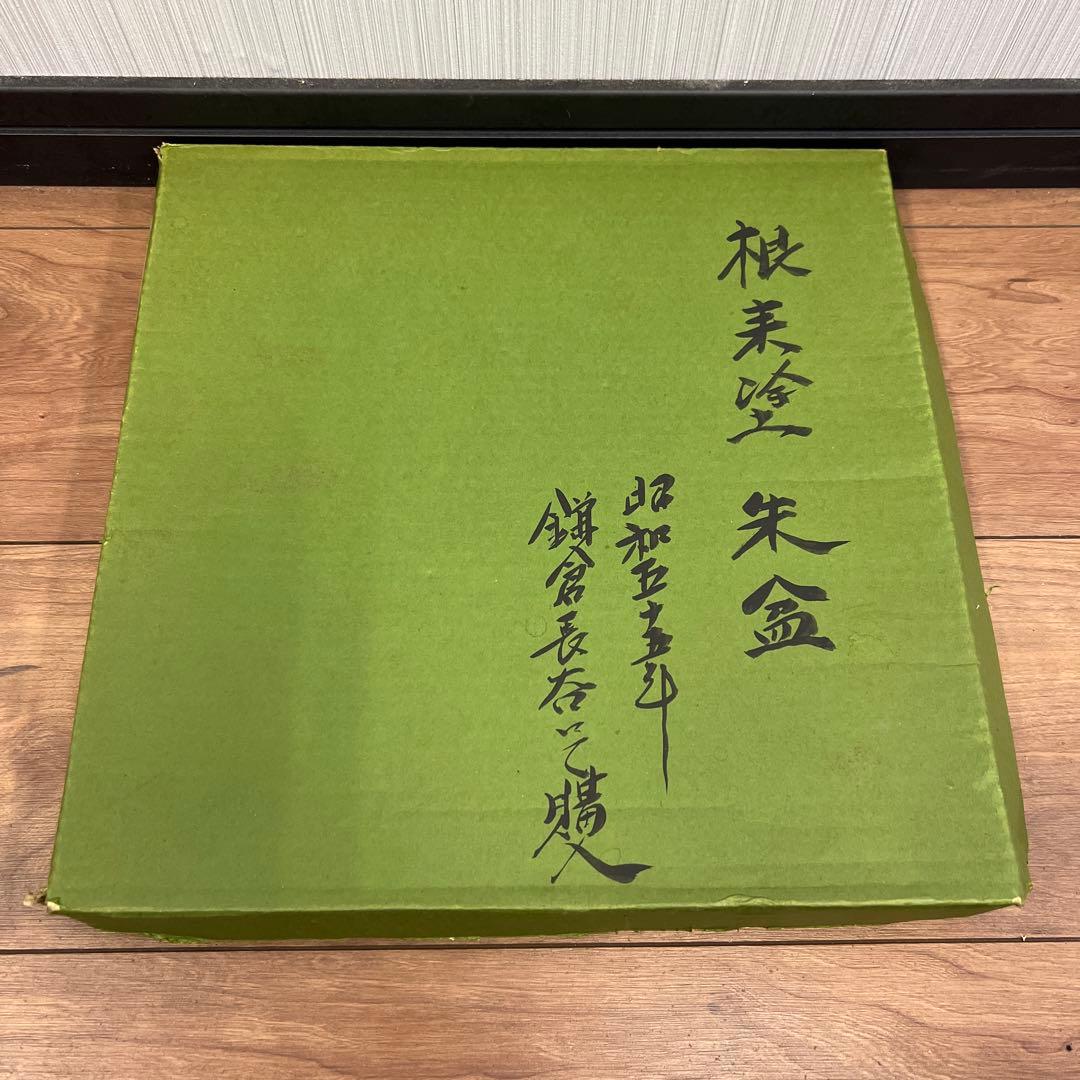 根来塗 朱盆
昭和五十五年
鎌倉長谷にて購入